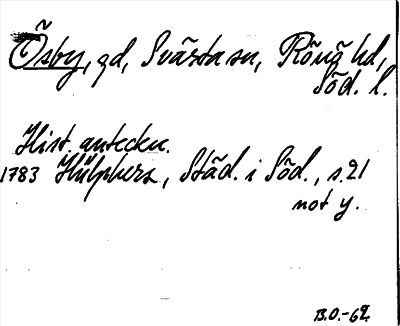 Ösby, gd, Svärta sn, Rönö hd,
Söd. l.
Hist. anteckn.
1783 Hülphers, Städ. i Söd., s. 21
not y.
B.O.-62.